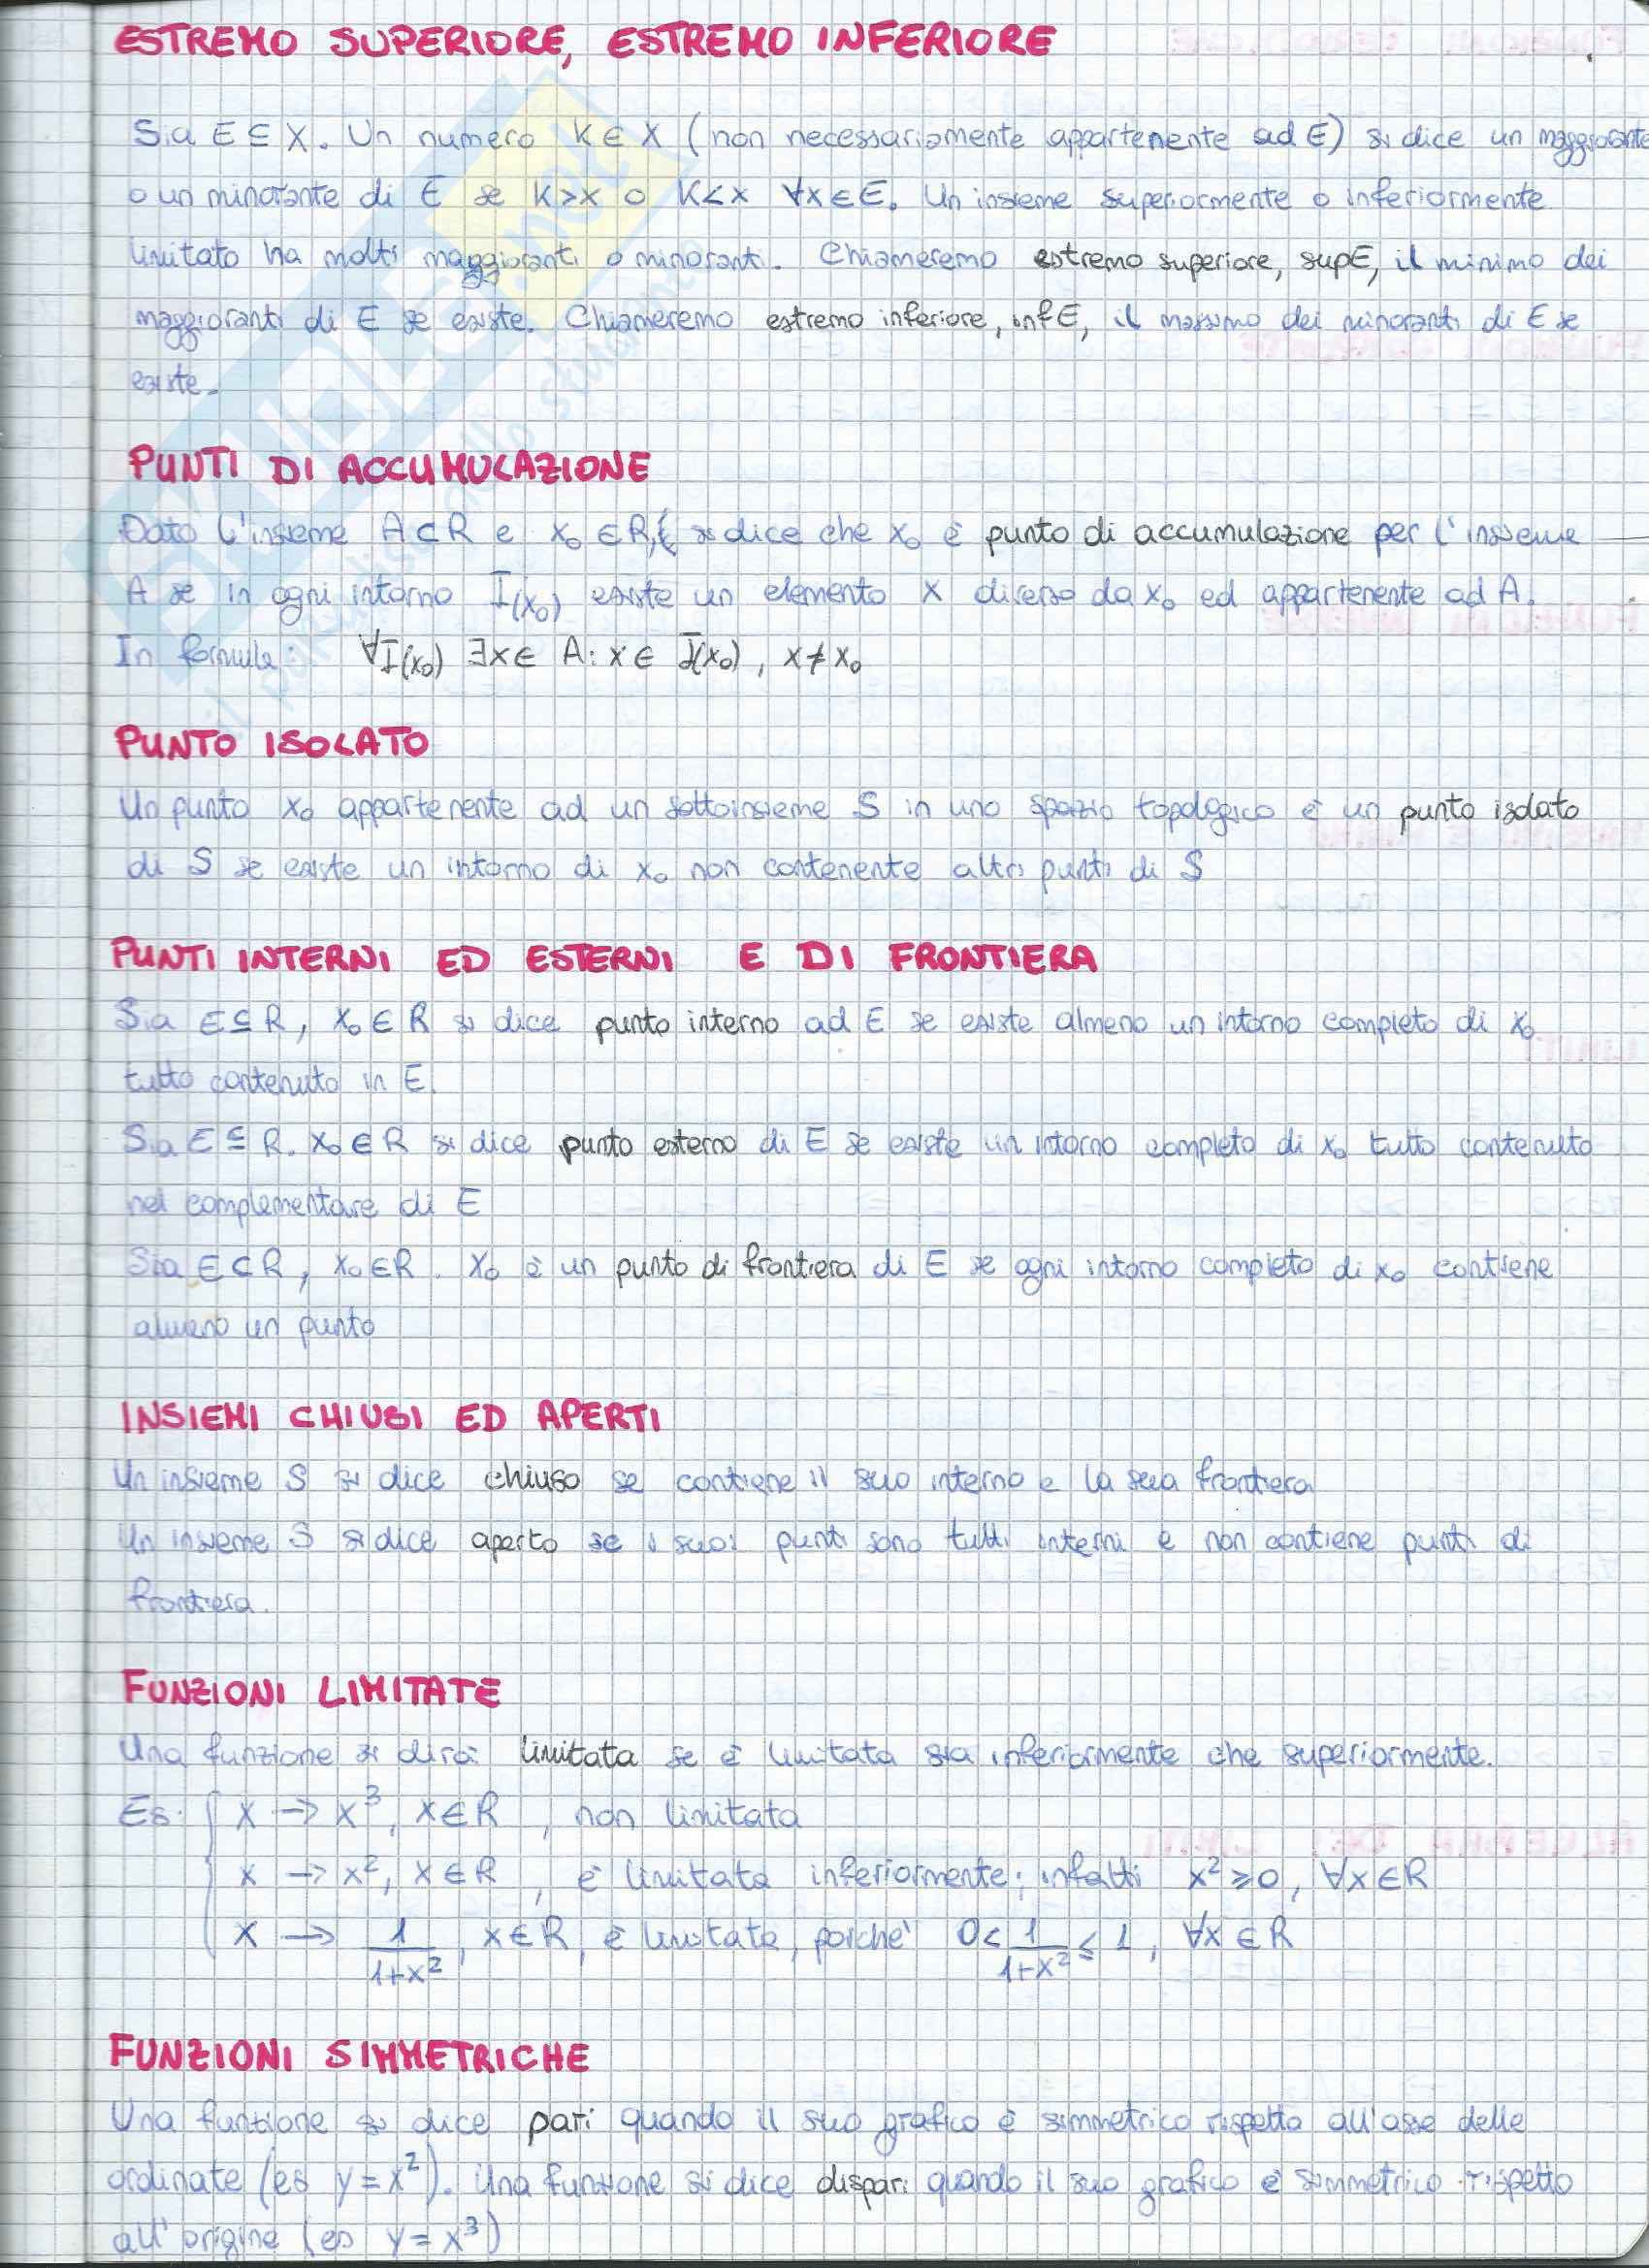 ESTREMO SUPERIORE, ESTREMO INFERIORE
Sia E ⊆ X. Un numero K ∈ X (non necessariamente appartenente ad E) si dice un maggiorante
o un minorante di E se K>x o K<x ∀x∈E. Un insieme superiormente o inferiormente
limitato ha molti maggioranti o minoranti. Chiameremo estremo superiore, supE, il minimo dei
maggioranti di E se esiste. Chiameremo estremo inferiore, infE, il massimo dei minoranti di E se
esiste.
PUNTI DI ACCUMULAZIONE
Dato l'insieme A⊂R e x₀ ∈R, si dice che x₀ è punto di accumulazione per l'insieme
A se in ogni intorno I(x₀) esiste un elemento x diverso da x₀ ed appartenente ad A.
In formule: ∀I(x₀) ∃x∈ A: x∈ I(x₀), x≠x₀
PUNTO ISOLATO
Un punto x₀ appartenente ad un sottoinsieme S in uno spazio topologico è un punto isolato
di S se esiste un intorno di x₀ non contenente altri punti di S
PUNTI INTERNI ED ESTERNI E DI FRONTIERA
Sia E⊆R, x₀∈R si dice punto interno ad E se esiste almeno un intorno completo di x₀
tutto contenuto in E.
Sia E⊆R. x₀∈R si dice punto esterno di E se esiste un intorno completo di x₀ tutto contenuto
nel complementare di E
Sia E⊂R, x₀∈R. x₀ è un punto di frontiera di E se ogni intorno completo di x₀ contiene
almeno un punto
INSIEMI CHIUSI ED APERTI
Un insieme S si dice chiuso se contiene il suo interno e la sua frontiera
Un insieme S si dice aperto se i suoi punti sono tutti interni e non contiene punti di
frontiera.
FUNZIONI LIMITATE
Una funzione si dirà limitata se è limitata sia inferiormente che superiormente.
Es. { x → x³, x∈R, non limitata
x → x², x∈R, è limitata inferiormente; infatti x²≥0, ∀x∈R
x → 1/(1+x²), x∈R, è limitata, poiché 0<1/(1+x²)≤1, ∀x∈R
FUNZIONI SIMMETRICHE
Una funzione si dice pari quando il suo grafico è simmetrico rispetto all'asse delle
ordinate (es y=x²). Una funzione si dice dispari quando il suo grafico è simmetrico rispetto
all'origine (es y=x³)